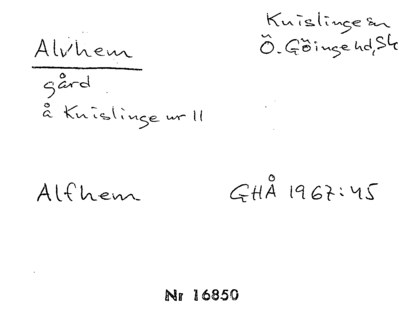 Alvhem
Knislinge sn
Ö. Göinge hd, Sk
gård
å Knislinge nr 11
Alfhem
GHÅ 1967:45
Nr 16850